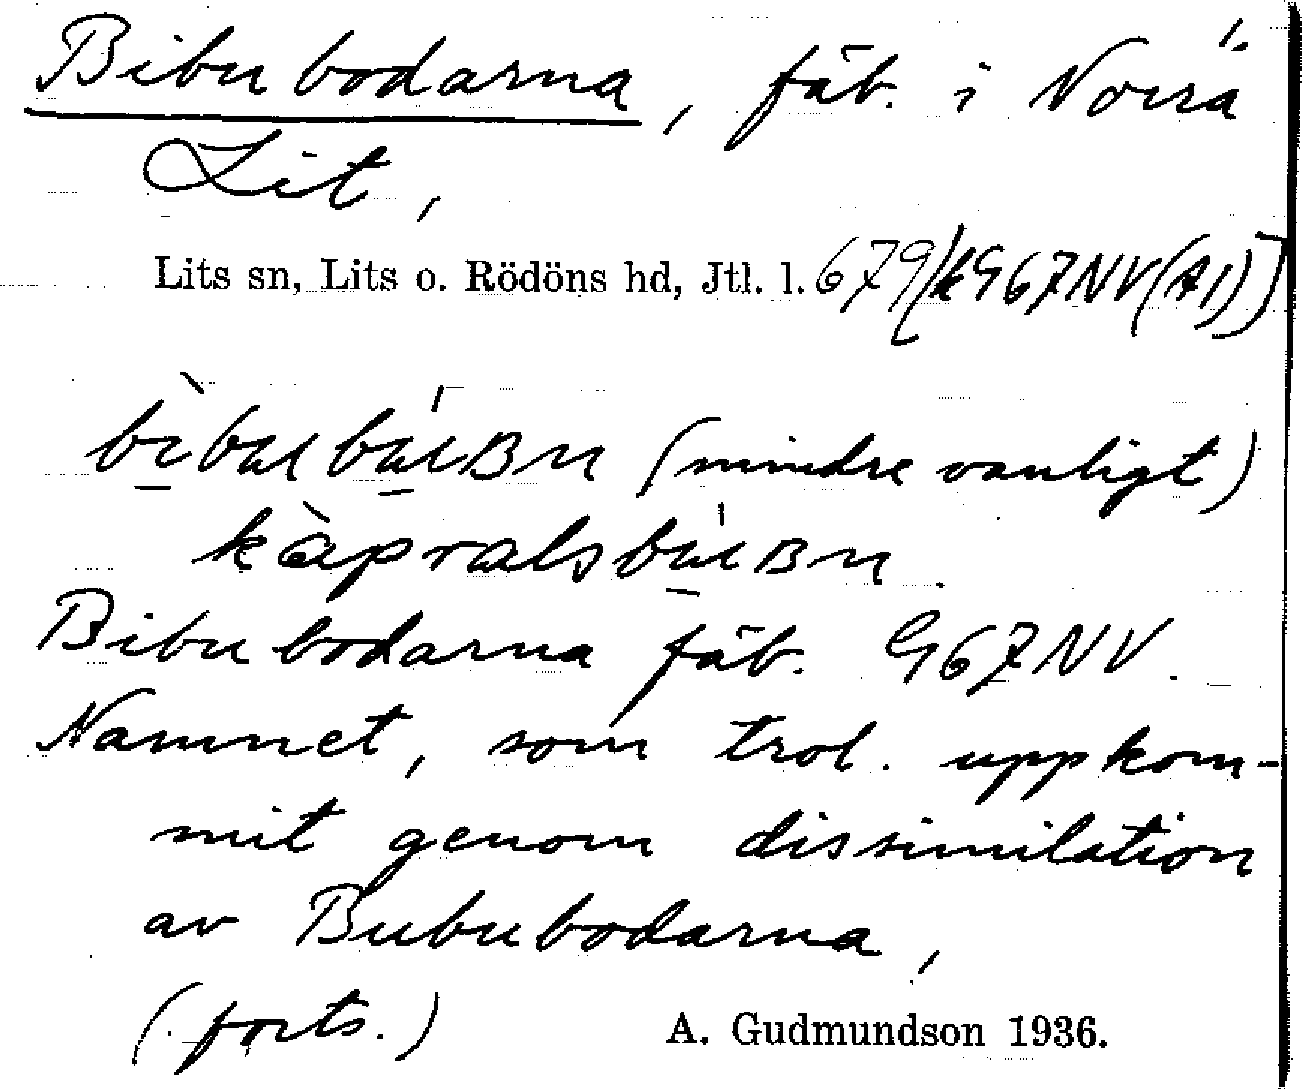 Bibubodarna, fäb. i Norra
Lit,
Lits sn, Lits o. Rödöns hd, Jtl. l. 679/kG67NV(A1)]
(mindre vanligt)
Bibubodarna fäb. G67NV.
Namnet, som trol. uppkom-
mit genom dissimilation
av Bububodarna,
(forts.) A. Gudmundson 1936.